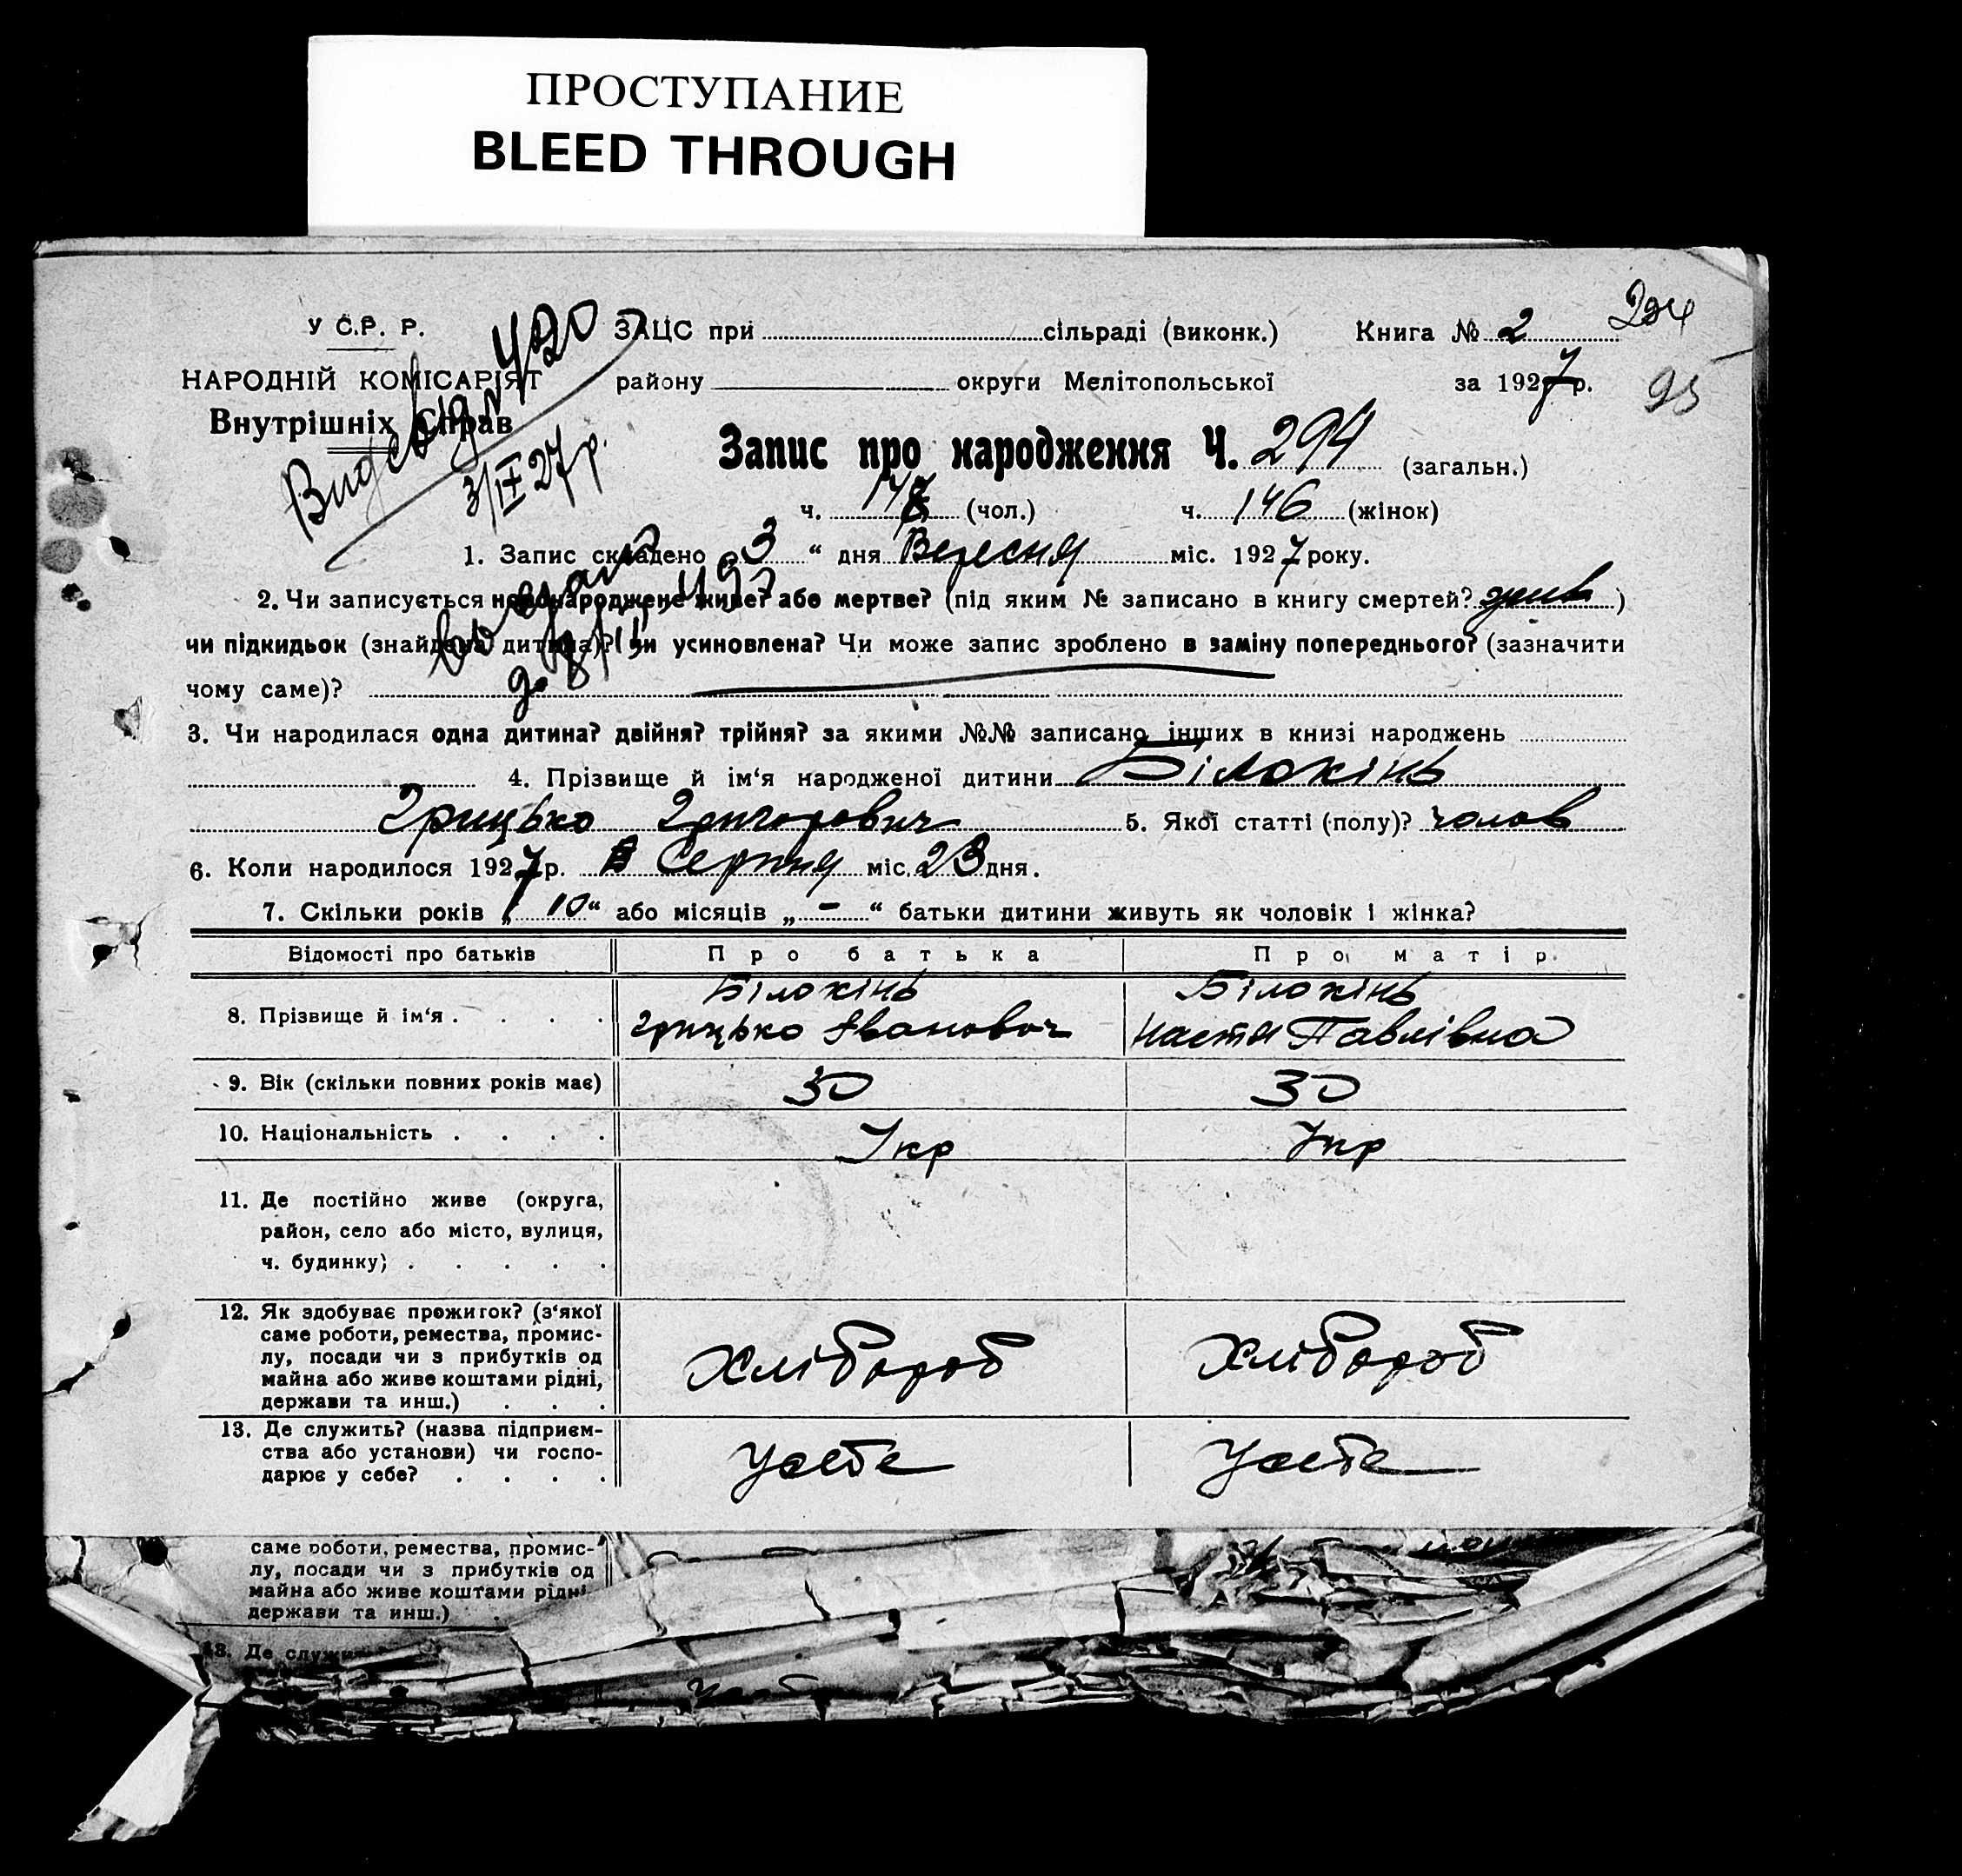 ПРОСТУПАНИЕ
BLEED THROUGH
У С.Р. Р.
НАРОДНІЙ КОМІСАРІЯТ
Внутрішніх Справ
Видсвід № 420
3/IX 27 р.
ЗАЦС при сільраді (виконк.) Книга № 2
району округи Мелітопольської за 1927 р.
95
Запис про народження Ч. 294 (загальн.)
ч. 148 (чол.) ч. 146 (жінок)
1. Запис складено „3“ дня Вересня міс. 1927 року.
2. Чи записується новонароджене живе? або мертве? (під яким № записано в книгу смертей? живе)
чи підкидьок (знайдена дитина)? чи усиновлена? Чи може запис зроблено в заміну попереднього? (зазначити
чому саме)?
3. Чи народилася одна дитина? двійня? трійня? за якими №№ записано інших в книзі народжень
4. Прізвище й ім‘я народженої дитини Білокінь
Грицько Григорович 5. Якої статті (полу)? чолов
6. Коли народилося 1927 р. Серпня міс. 23 дня.
7. Скільки років „10“ або місяців „-“ батьки дитини живуть як чоловік і жінка?
Відомості про батьків Про батька Про матір
8. Прізвище й ім‘я . . . . Білокінь Грицько Іванович Білокінь Настя Павлівна
9. Вік (скільки повних років має) 30 30
10. Національність . . . . Укр Укр
11. Де постійно живе (округа,
район, село або місто, вулиця,
ч. будинку) . . . . .
12. Як здобуває прожиток? (з‘якої
саме роботи, ремества, промис-
лу, посади чи з прибутків од
майна або живе коштами рідні,
держави та инш.) . . . Хлібороб Хлібороб
13. Де служить? (назва підприєм-
ства або установи) чи госпо-
дарює у себе? . . . . Усебе Усебе
саме роботи, ремества, промис-
лу, посади чи з прибутків од
майна або живе коштами рідні
держави та инш.)
13. Де служи